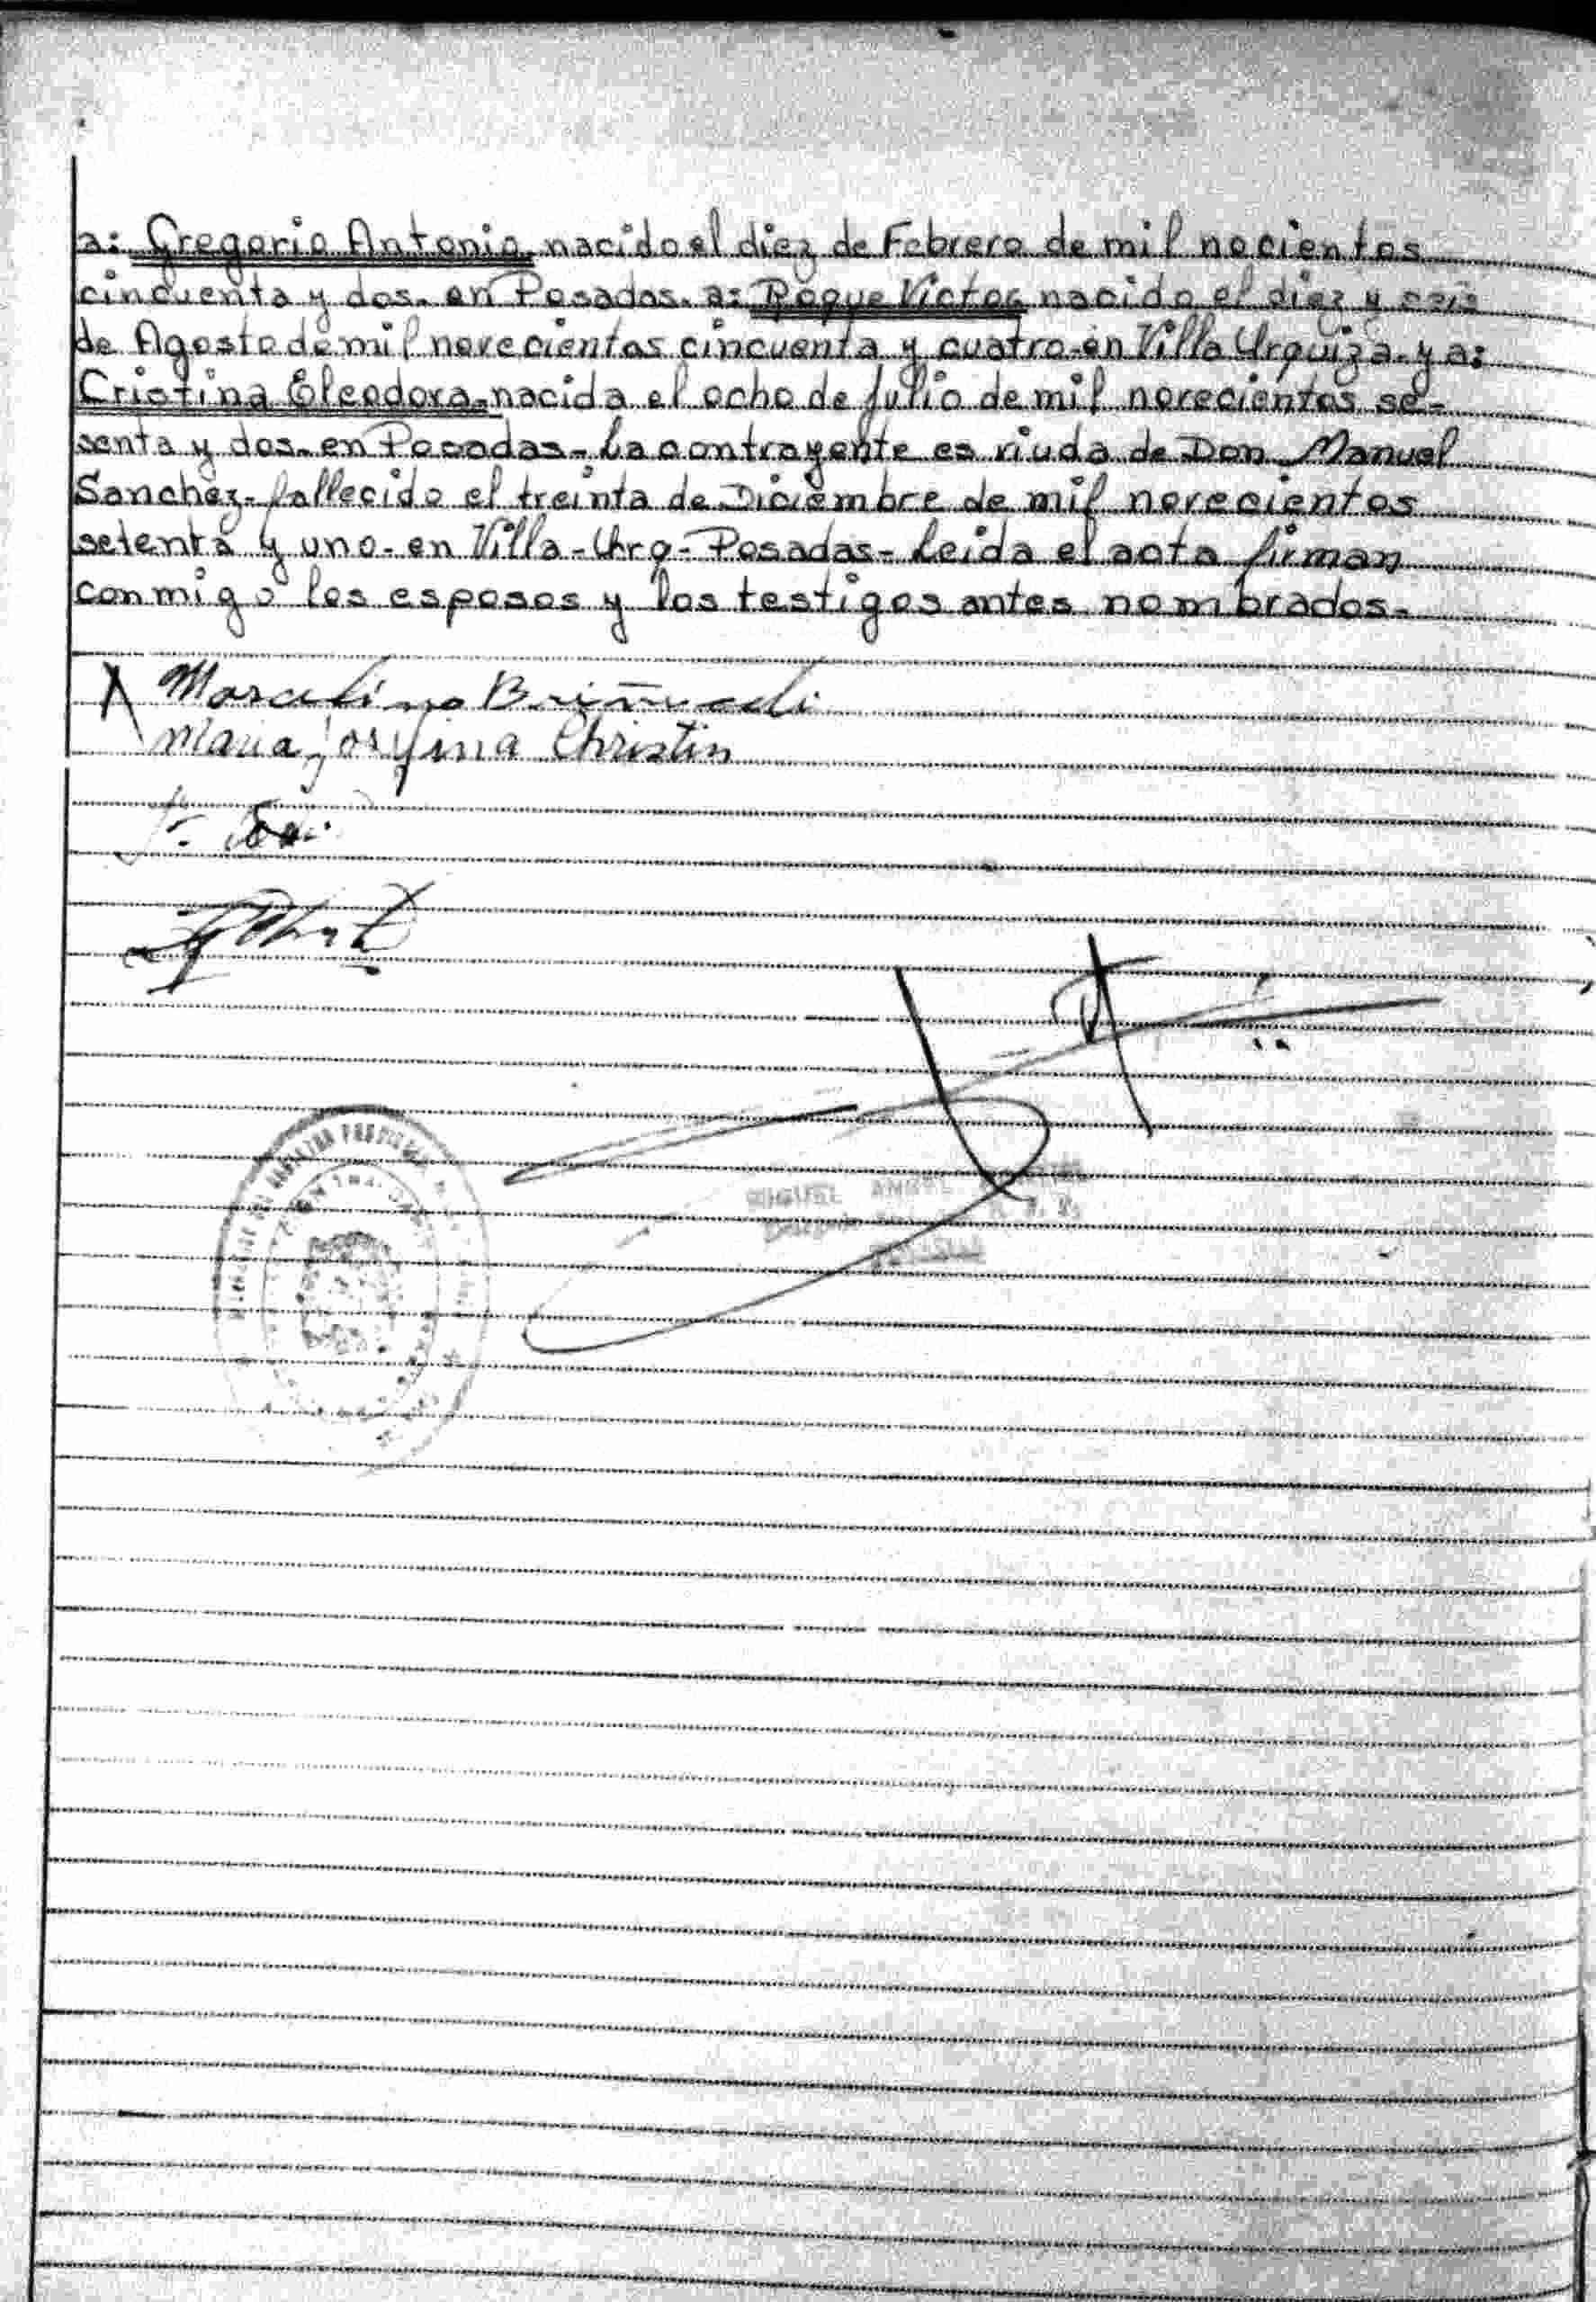 a: Gregorio Antonio, nacido el diez de Febrero de mil nocientos
cincuenta y dos- en Posadas- a: Roque Victor nacido el diez y seis
de Agosto de mil novecientos cincuenta y cuatro-en Villa Urquiza- y a:
Cristina Eleodora-nacida el ocho de Julio de mil novecientos se-
senta y dos- en Posadas- La contrayente es viuda de Don Manuel
Sanchez- fallecido el treinta de Diciembre de mil novecientos
setenta y uno- en Villa-Urq- Posadas- Leida el acta firman
conmigo los esposos y los testigos antes nombrados-
Marcelino
Maria Jorgina Christin
MIGUEL ANGEL